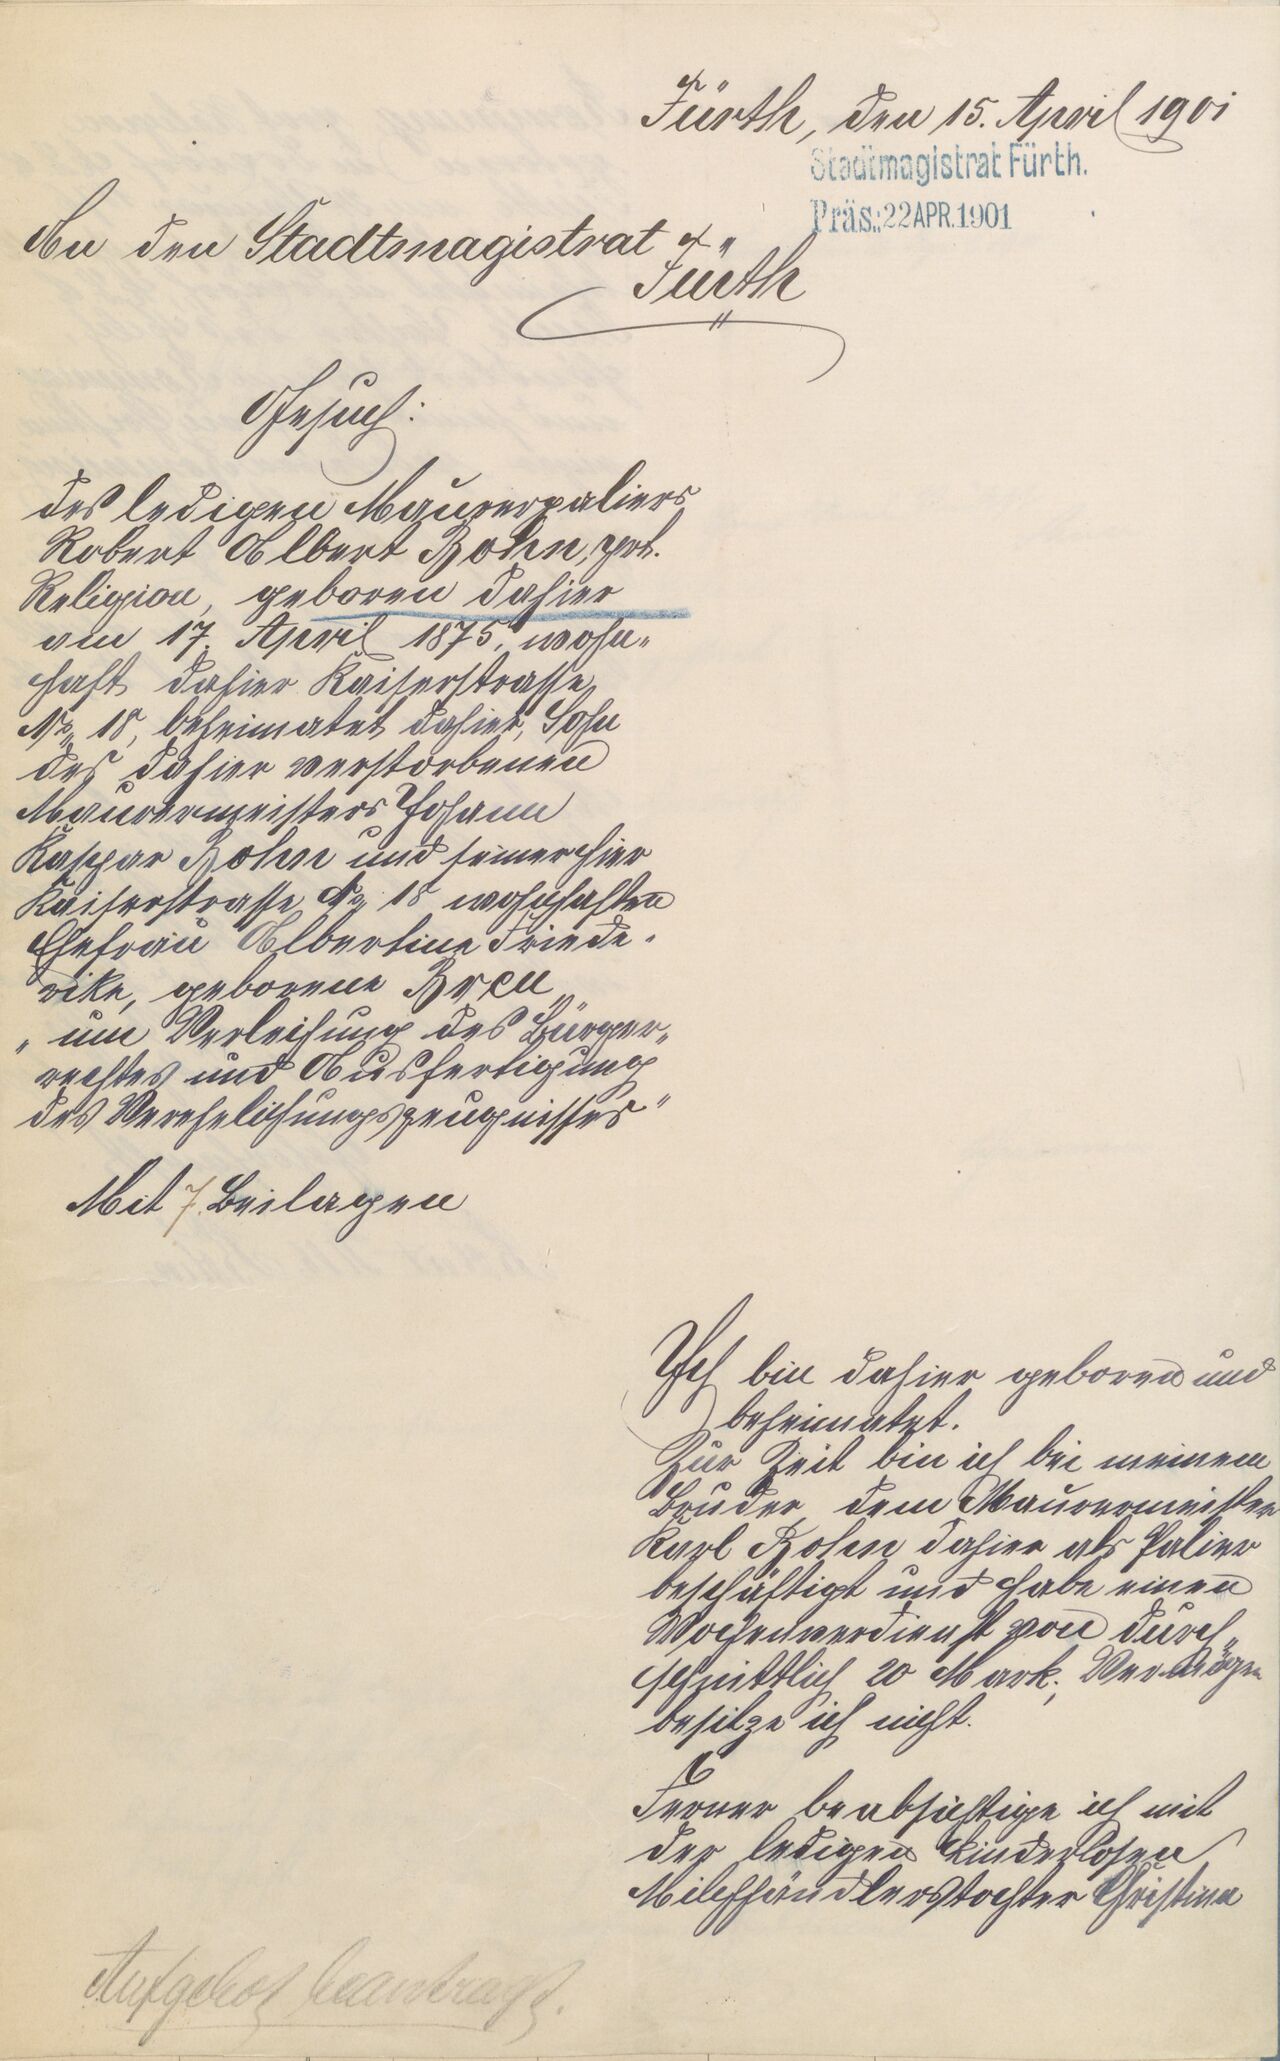 Fürth, den 15. April 1901
Stadtmagistrat Fürth.
Präs.: 22 APR. 1901
An den Stadtmagistrat
Fürth
Gesuch:
des ledigen Maurerpaliers
Robert Albert Bohn, prt.
Religion, geboren dahier
am 17. April 1875, wohn-
haft dahier Kaiserstrasse
No 18, beheimatet dahier, Sohn
des dahier verstorbenen
Maurermeisters Johann
Kaspar Bohn und seiner hier
Kaiserstrasse No 18 wohnhaften
Ehefrau Albertine Friede-
rike, geborene Breu
"um Verleihung des Bürger-
rechtes und Ausfertigung
des Verehelichungszeugnisses"
Mit 7 Beilagen
Ich bin dahier geboren und
beheimatet.
Zur Zeit bin ich bei meinem
Bruder, dem Maurermeister
Karl Bohn dahier als Palier
beschäftigt und habe einen
Wochenverdienst von durch-
schnittlich 20 Mark; Vermögen
besitze ich nicht.
Ferner beabsichtige ich mit
der ledigen kinderlosen
Milchhändlerstochter Christina
Aufgebot beantragt.